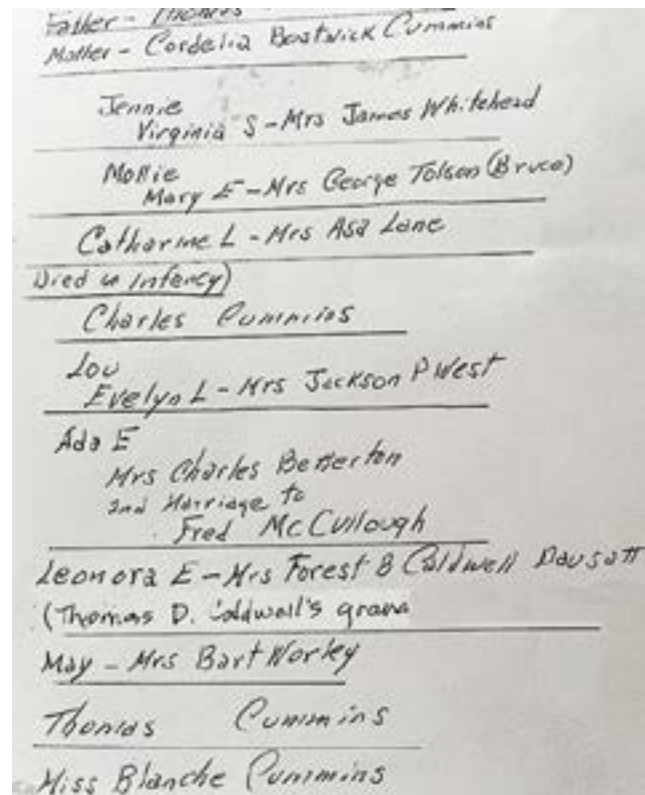 Father - Thomas
Mother - Cordelia Bostwick Cummins
Jennie
Virginia S - Mrs James Whitehead
Mollie
Mary E - Mrs George Tolson (Bruce)
Catharine L - Mrs Asa Lane
Died in infancy)
Charles Cummins
Lou
Evelyn L - Mrs Jackson P West
Ada E
Mrs Charles Betterton
2nd Marriage to
Fred McCullough
Leonora E - Mrs Forest B Caldwell
(Thomas D. Caldwell's grand
May - Mrs Bart Worley
Thomas Cummins
Miss Blanche Cummins